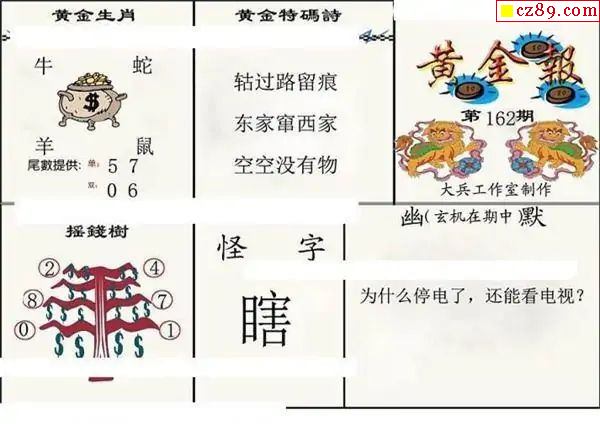 cz89.com
黄金生肖
牛 蛇
$
羊 鼠
尾數提供: 单: 5 7
双: 0 6
黄金特碼詩
轱过路留痕
东家窜西家
空空没有物
黄金報
第162期
大兵工作室制作
摇錢樹
2 4
8 7
0 1
怪 字
瞎
幽(玄机在期中)默
为什么停电了，还能看电视?